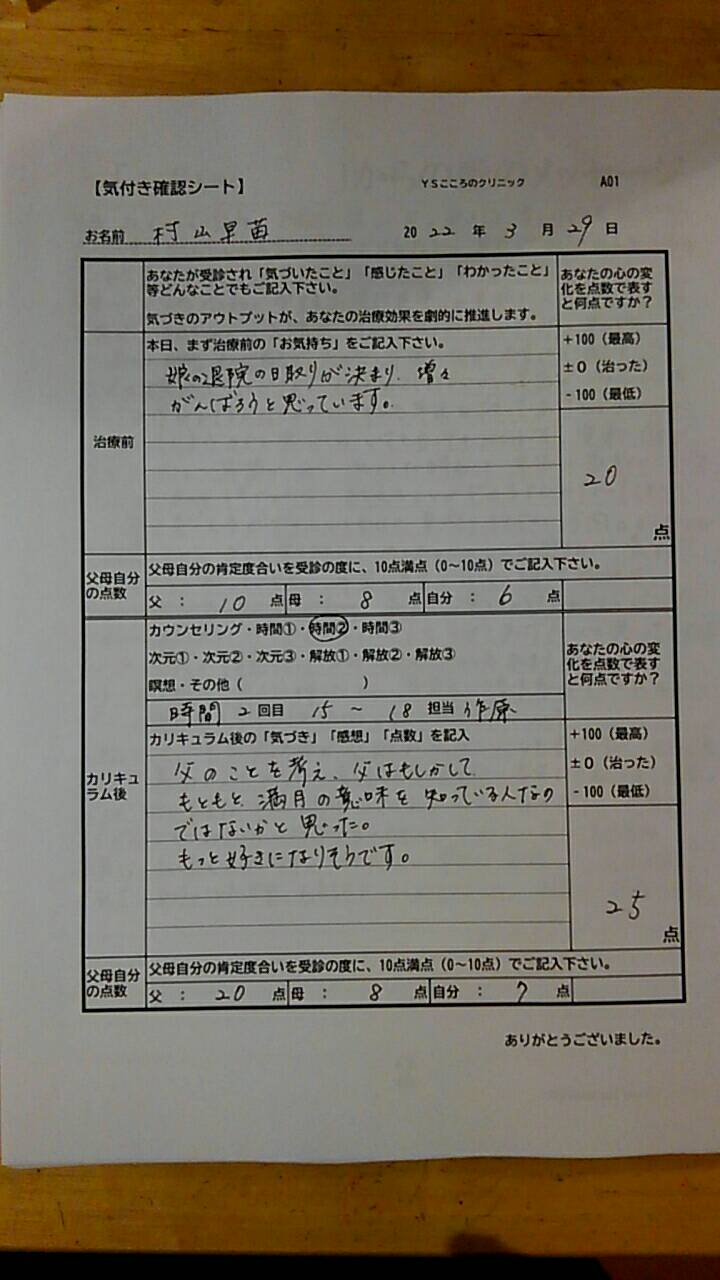 【気付き確認シート】 YSこころのクリニック A01
お名前 村山早苗 2022年3月29日
あなたが受診され「気づいたこと」「感じたこと」「わかったこと」
等どんなことでもご記入下さい。
気づきのアウトプットが、あなたの治療効果を劇的に推進します。
あなたの心の変
化を点数で表す
と何点ですか?
治療前
本日、まず治療前の「お気持ち」をご記入下さい。
娘の退院の日取りが決まり、増々
がんばろうと思っています。
+100(最高)
±0(治った)
-100(最低)
20
点
父母自分
の点数
父母自分の肯定度合いを受診の度に、10点満点(0〜10点)でご記入下さい。
父 : 10 点 母 : 8 点 自分 : 6 点
カリキュ
ラム後
カウンセリング・時間①・時間②・時間③
次元①・次元②・次元③・解放①・解放②・解放③
瞑想・その他( )
時間 2回目 15 〜 18 担当 作原
あなたの心の変
化を点数で表す
と何点ですか?
カリキュラム後の「気づき」「感想」「点数」を記入
父のことを考え、父はもしかして
もともと、満月の意味を知っている人なの
ではないかと思った。
もっと好きになりそうです。
+100(最高)
±0(治った)
-100(最低)
25
点
父母自分
の点数
父母自分の肯定度合いを受診の度に、10点満点(0〜10点)でご記入下さい。
父 : 20 点 母 : 8 点 自分 : 7 点
ありがとうございました。